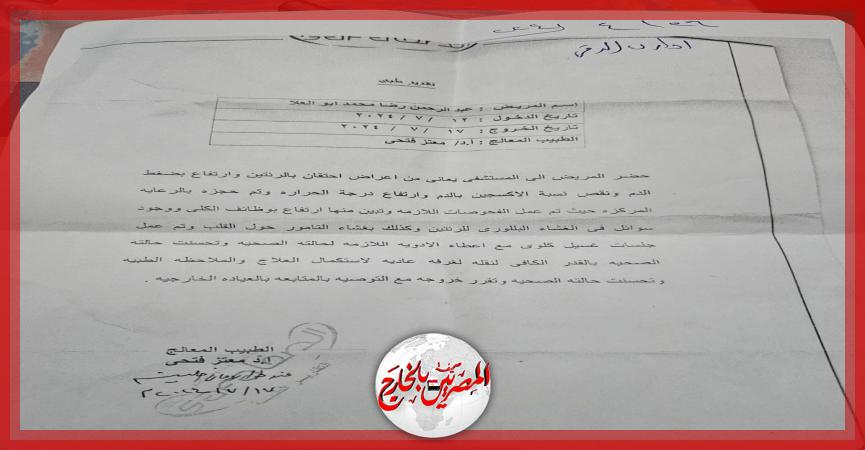 ادارة الدقى
تقرير طبى
إسم المريض : عبد الرحمن رضا محمد ابو العلا
تاريخ الدخول : ١٢ / ٧ / ٢٠٢٤
تاريخ الخروج : ١٧ / ٧ / ٢٠٢٤
الطبيب المعالج : أ.د/ معتز فتحى
حضر المريض الى المستشفى يعانى من اعراض احتقان بالرئتين وارتفاع بضغط
الدم ونقص نسبة الاكسجين بالدم وارتفاع درجة الحراره وتم حجزه بالرعايه
المركزه حيث تم عمل الفحوصات اللازمه وتبين منها ارتفاع بوظائف الكلى ووجود
سوائل فى الغشاء البللورى للرئتين وكذلك بغشاء التامور حول القلب وتم عمل
جلسات غسيل كلوى مع اعطاء الادويه اللازمه لحالته الصحيه وتحسنت حالته
الصحيه بالقدر الكافى لنقله لغرفه عاديه لاستكمال العلاج والملاحظه الطبيه
وتحسنت حالته الصحيه وتقرر خروجه مع التوصيه بالمتابعه بالعياده الخارجيه .
الطبيب المعالج
أ.د معتز فتحى
المصريين بالخارج